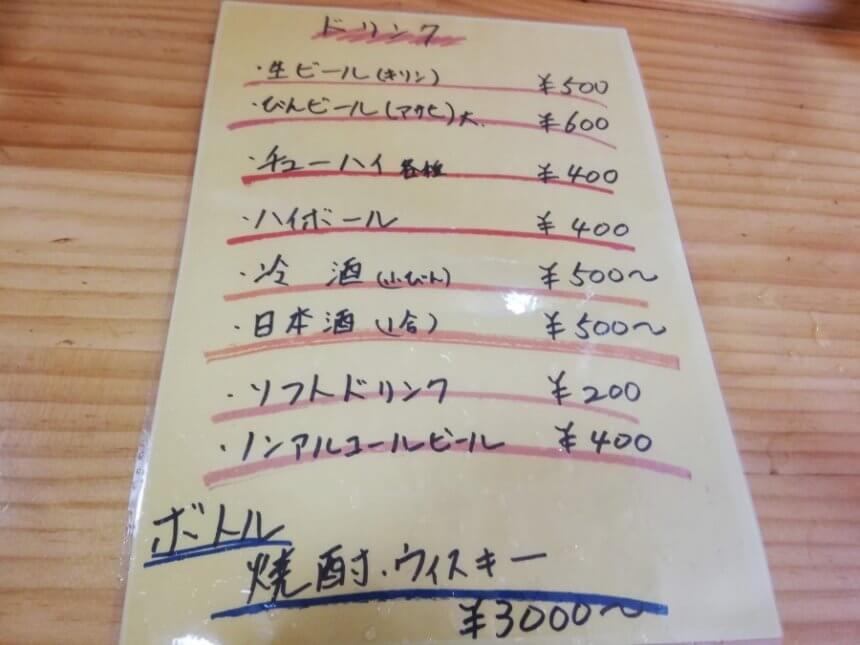 ドリンク
・生ビール(キリン) ¥500
・びんビール(アサヒ)大. ¥600
・チューハイ 各種 ¥400
・ハイボール ¥400
・冷酒(小びん) ¥500〜
・日本酒(1合) ¥500〜
・ソフトドリンク ¥200
・ノンアルコールビール ¥400
ボトル
焼酎・ウィスキー
¥3000〜